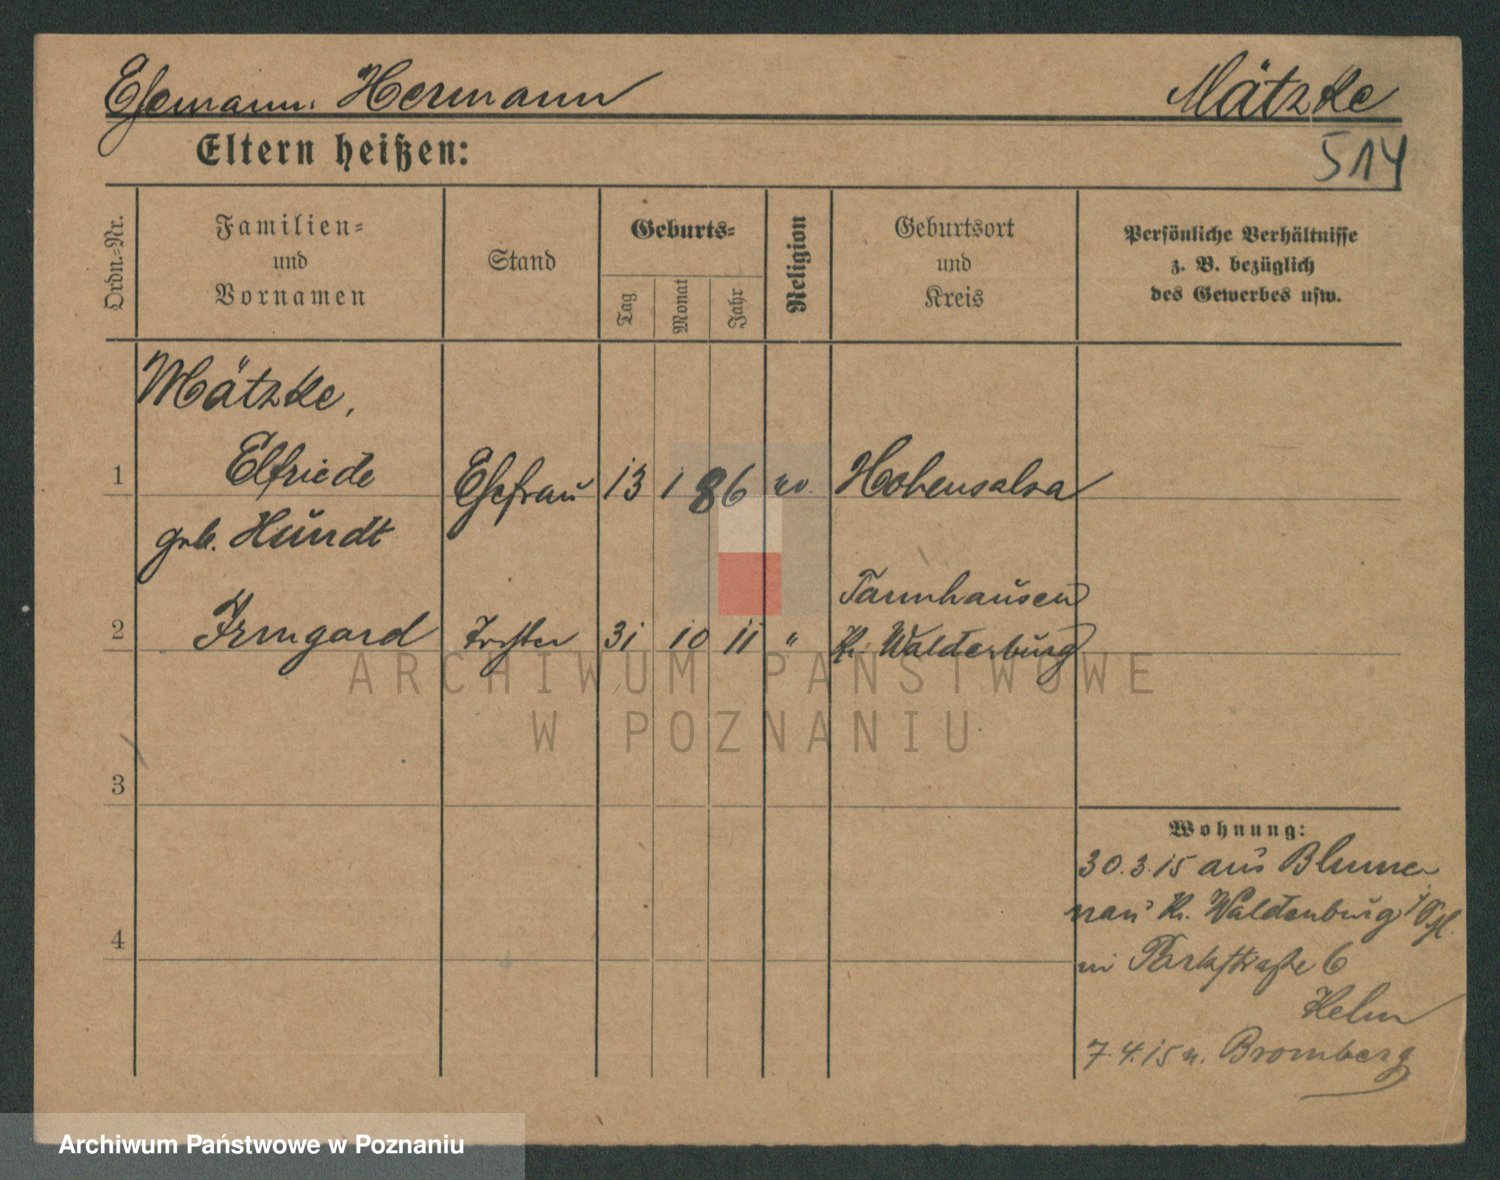 Ehemann: Hermann Mätzke
514
Eltern heißen:
Ordn.-Nr.
Familien-
und
Vornamen
Stand
Geburts-
Tag
Monat
Jahr
Religion
Geburtsort
und
Kreis
Persönliche Verhältnisse
z. B. bezüglich
des Gewerbes usw.
Mätzke,
1 Elfriede Ehefrau 13 1 86 ev. Hohensalza
geb. Hundt
Tannhausen
2 Irmgard Tochter 31 10 11 " Kr. Waldenburg
ARCHIWUM PAŃSTWOWE
W POZNANIU
3
4
Wohnung:
30.3.15 aus Blume-
nau Kr. Waldenburg i/Schl.
in Parkstraße 6
7.4.15 n. Bromberg
Archiwum Państwowe w Poznaniu